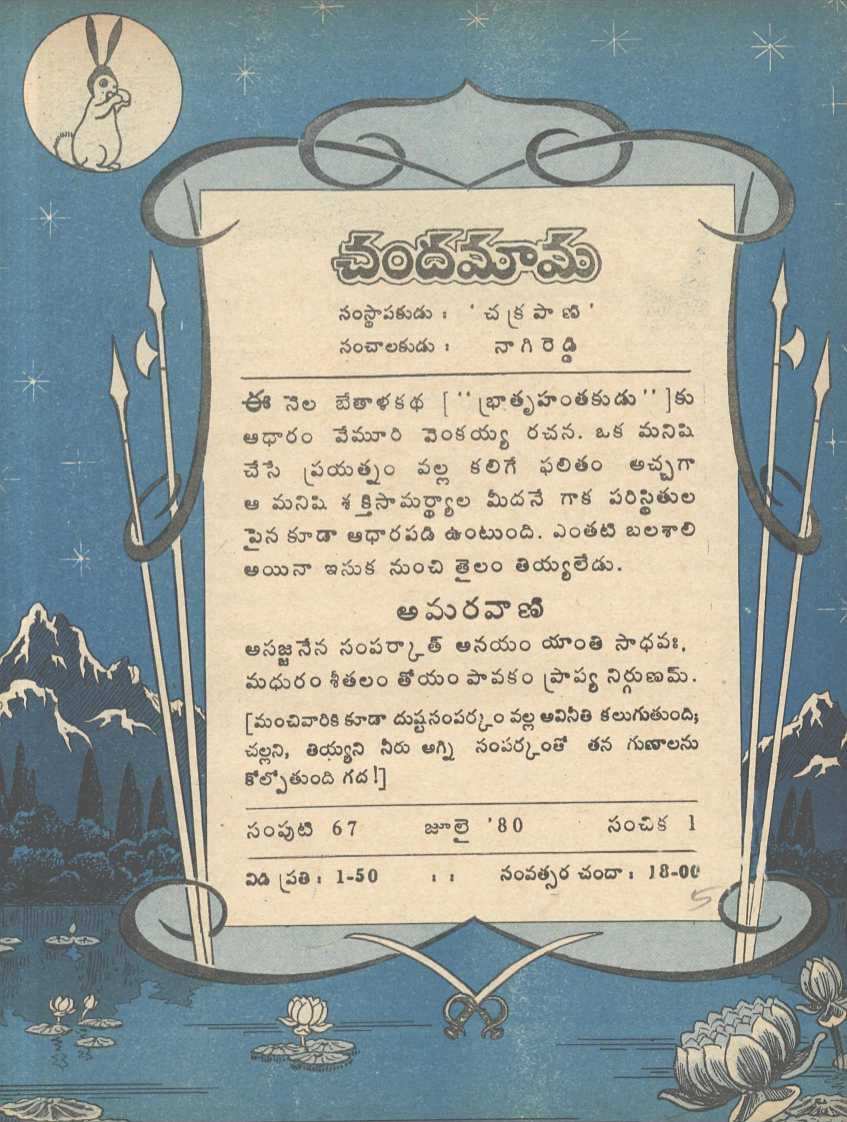 చందమామ
సంస్థాపకుడు : 'చక్రపాణి'
సంచాలకుడు : నాగిరెడ్డి
ఈ నెల బేతాళకథ [''భ్రాతృహంతకుడు'']కు
ఆధారం వేమూరి వెంకయ్య రచన. ఒక మనిషి
చేసే ప్రయత్నం వల్ల కలిగే ఫలితం అచ్చగా
ఆ మనిషి శక్తిసామర్థ్యాల మీదనే గాక పరిస్థితుల
పైన కూడా ఆధారపడి ఉంటుంది. ఎంతటి బలశాలి
అయినా ఇసుక నుంచి తైలం తియ్యలేడు.
అమరవాణి
అసజ్జనేన సంపర్కాత్ అనయం యాంతి సాధవః,
మధురం శీతలం తోయం పావకం ప్రాప్య నిర్గుణమ్.
[మంచివారికి కూడా దుష్టసంపర్కం వల్ల అవినీతి కలుగుతుంది;
చల్లని, తియ్యని నీరు అగ్ని సంపర్కంతో తన గుణాలను
కోల్పోతుంది గద!]
సంపుటి 67 జూలై '80 సంచిక 1
విడి ప్రతి : 1-50 : : సంవత్సర చందా : 18-00
5